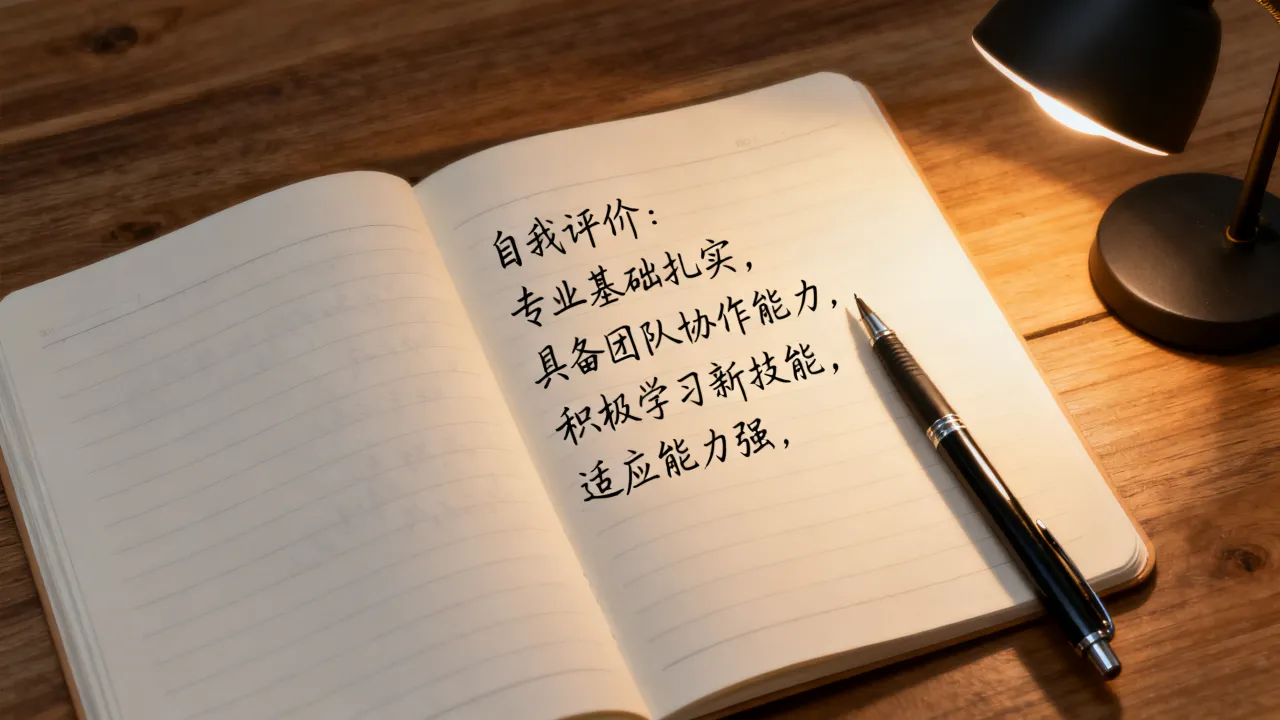 自我评价：
专业基础扎实，
具备团队协作能力，
积极学习新技能，
适应能力强，